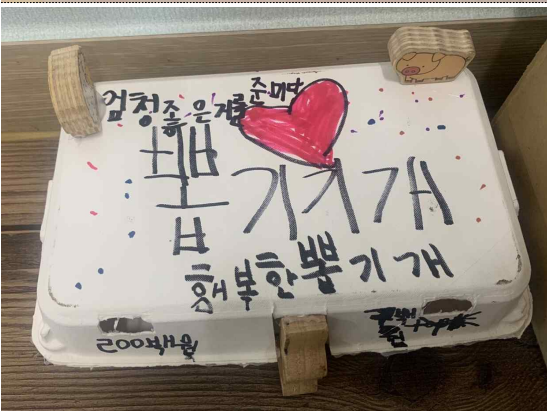 엄청좋은거를 준비다
뽑기기개
행복한뽑기개
200백원